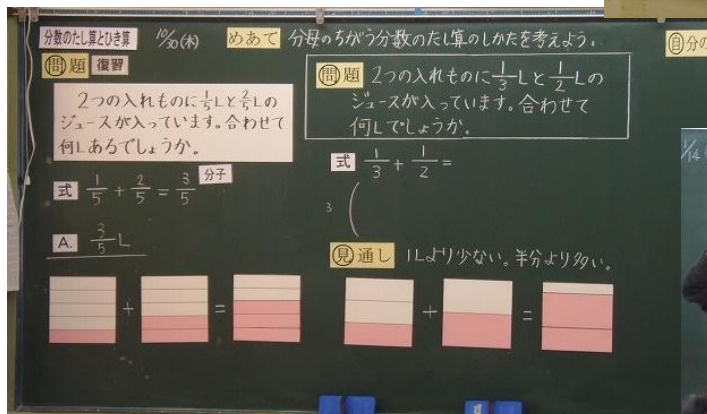 分数のたし算とひき算
10/30(木)
めあて 分母のちがう分数のたし算のしかたを考えよう。
問題 復習
2つの入れものに1/5Lと2/5Lの
ジュースが入っています。合わせて
何Lあるでしょうか。
式 1/5 + 2/5 = 3/5
分子
A. 3/5 L
+ =
問題 2つの入れものに1/3Lと1/2Lの
ジュースが入っています。合わせて
何Lでしょうか。
式 1/3 + 1/2 =
3 (
見通し 1Lより少ない。半分より多い。
+ =
自分の
1/14